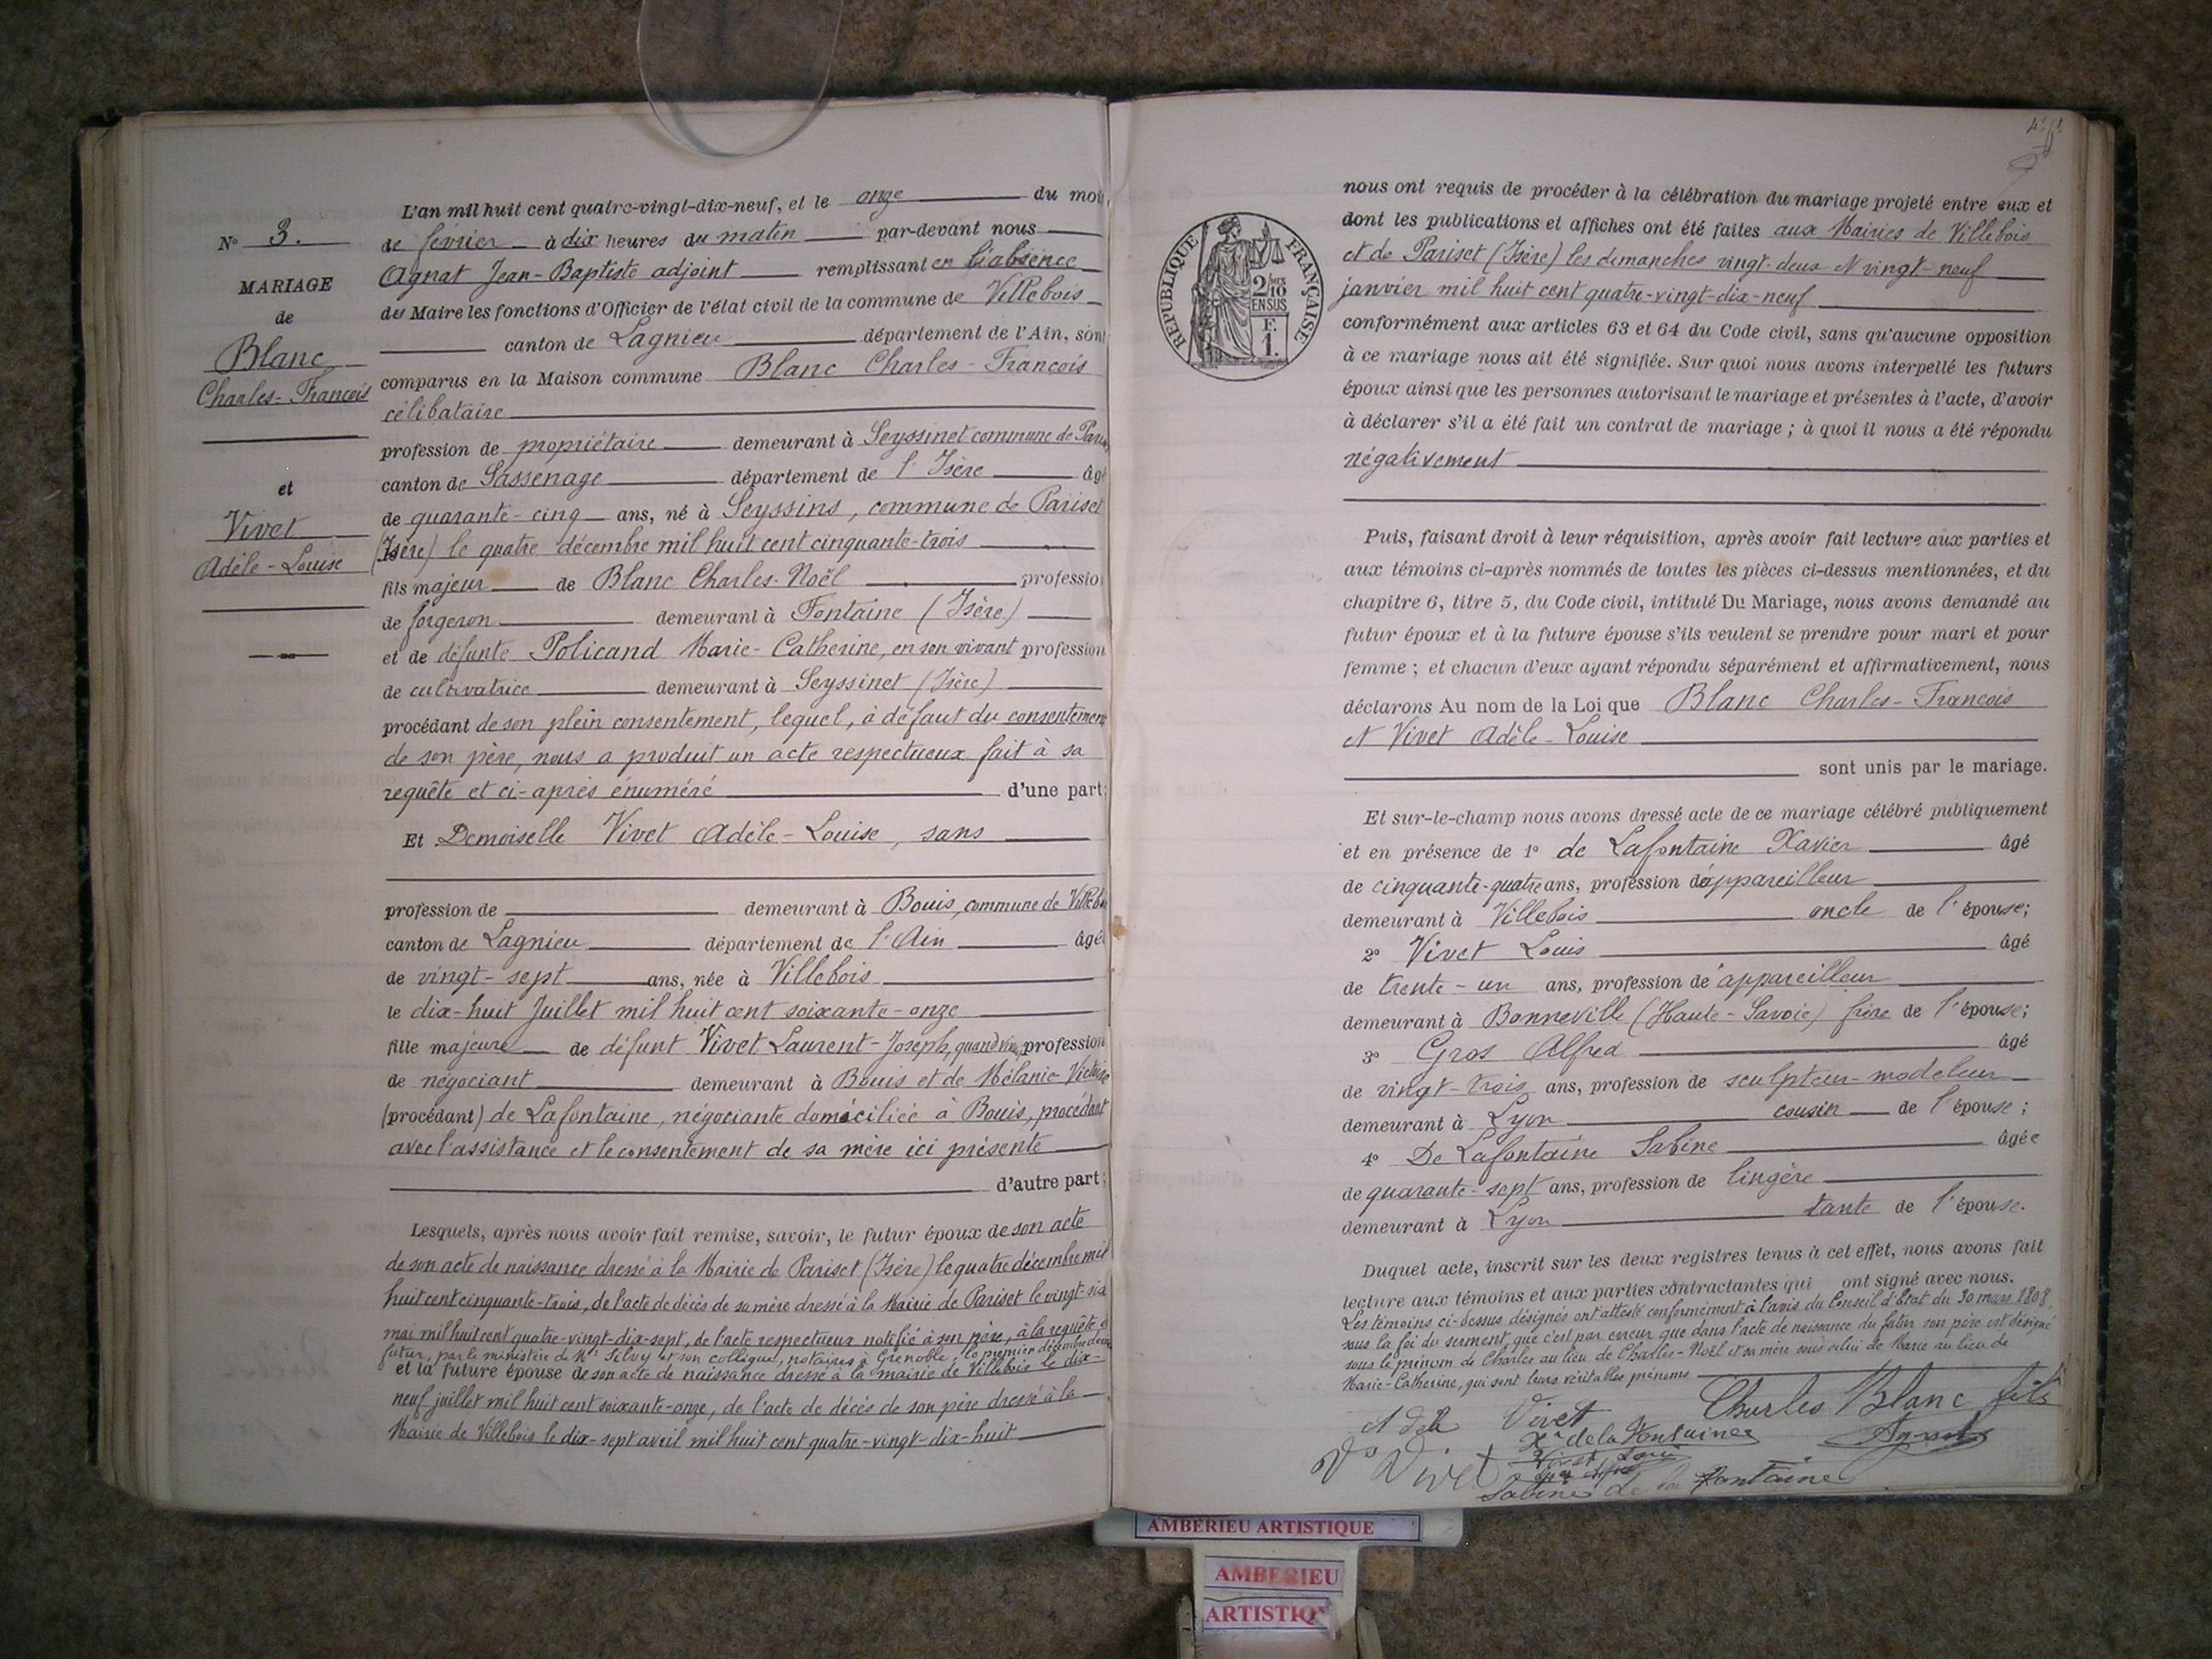 N° 3.
MARIAGE
de
Blanc
Charles-François
et
Vivet
Adèle-Louise
L'an mil huit cent quatre-vingt-dix-neuf, et le onze du moi
de février à dix heures du matin par-devant nous
Agnat Jean-Baptiste adjoint remplissant en l'absence
du Maire les fonctions d'Officier de l'état civil de la commune de Villebois
canton de Lagnieu département de l'Ain, sont
comparus en la Maison commune Blanc Charles-François
célibataire
profession de propriétaire demeurant à Seyssinet commune de
canton de Sassenage département de l'Isère âgé
de quarante-cinq ans, né à Seyssins, commune de Pariset
(Isère) le quatre décembre mil huit cent cinquante-trois
fils majeur de Blanc Charles-Noël profession
de forgeron demeurant à Fontaine (Isère)
et de défunte Policand Marie-Catherine, en son vivant profession
de cultivatrice demeurant à Seyssinet (Isère)
procédant de son plein consentement, lequel, à défaut du consentement
de son père, nous a produit un acte respectueux fait à sa
requête et ci-après énuméré d'une part;
Et Demoiselle Vivet Adèle-Louise, sans
profession de demeurant à Bouis, commune de Villebois
canton de Lagnieu département de l'Ain âgée
de vingt-sept ans, née à Villebois
le dix-huit Juillet mil huit cent soixante-onze
fille majeure de défunt Vivet Laurent-Joseph, quand vivait profession
de négociant demeurant à Bouis et de Mélanie Victoise
(procédant) de Lafontaine, négociante domiciliée à Bouis, procédant
avec l'assistance et le consentement de sa mère ici présente
d'autre part;
Lesquels, après nous avoir fait remise, savoir, le futur époux de son acte
de son acte de naissance dressé à la Mairie de Pariset (Isère) le quatre décembre mil
huit cent cinquante-trois, de l'acte de décès de sa mère dressé à la Mairie de Pariset le vingt-six
mai mil huit cent quatre-vingt-dix-sept, de l'acte respectueux notifié à son père, à la requête du
futur, par le ministère de Me Silvy et son collègue, notaires à Grenoble, le premier décembre dernier
et la future épouse de son acte de naissance dressé à la mairie de Villebois le dix-
neuf juillet mil huit cent soixante-onze, de l'acte de décès de son père dressé à la
Mairie de Villebois le dix-sept avril mil huit cent quatre-vingt-dix-huit
RÉPUBLIQUE FRANÇAISE
2/10
EN SUS
F.
1.
nous ont requis de procéder à la célébration du mariage projeté entre eux et
dont les publications et affiches ont été faites aux Mairies de Villebois
et de Pariset (Isère) les dimanches vingt-deux et vingt-neuf
janvier mil huit cent quatre-vingt-dix-neuf
conformément aux articles 63 et 64 du Code civil, sans qu'aucune opposition
à ce mariage nous ait été signifiée. Sur quoi nous avons interpellé les futurs
époux ainsi que les personnes autorisant le mariage et présentes à l'acte, d'avoir
à déclarer s'il a été fait un contrat de mariage ; à quoi il nous a été répondu
négativement
Puis, faisant droit à leur réquisition, après avoir fait lecture aux parties et
aux témoins ci-après nommés de toutes les pièces ci-dessus mentionnées, et du
chapitre 6, titre 5, du Code civil, intitulé Du Mariage, nous avons demandé au
futur époux et à la future épouse s'ils veulent se prendre pour mari et pour
femme ; et chacun d'eux ayant répondu séparément et affirmativement, nous
déclarons Au nom de la Loi que Blanc Charles-François
et Vivet Adèle-Louise
sont unis par le mariage.
Et sur-le-champ nous avons dressé acte de ce mariage célébré publiquement
et en présence de 1° de Lafontaine Xavier âgé
de cinquante-quatre ans, profession d'appareilleur
demeurant à Villebois oncle de l'épouse;
2° Vivet Louis âgé
de trente-un ans, profession d'appareilleur
demeurant à Bonneville (Haute-Savoie) frère de l'épouse;
3° Gros Alfred âgé
de vingt-trois ans, profession de sculpteur-modeleur
demeurant à Lyon cousin de l'épouse;
4° De Lafontaine Sabine âgée
de quarante-sept ans, profession de lingère
demeurant à Lyon tante de l'épouse.
Duquel acte, inscrit sur les deux registres tenus à cet effet, nous avons fait
lecture aux témoins et aux parties contractantes qui ont signé avec nous.
Les témoins ci-dessus désignés ont attesté conformément à l'avis du Conseil d'Etat du 30 mars 1808,
sous la foi du serment, que c'est par erreur que dans l'acte de naissance du futur son père est désigné
sous le prénom de Charles au lieu de Charles-Noël et sa mère sous celui de Marie au lieu de
Marie-Catherine, qui sont leurs véritables prénoms
Charles Blanc fils
Vivet
Xer de la Fontaine
Agnat
Ve Vivet
Vivet Louis
Sabine de la Fontaine
AMBERIEU ARTISTIQUE
AMBERIEU
ARTISTIQ